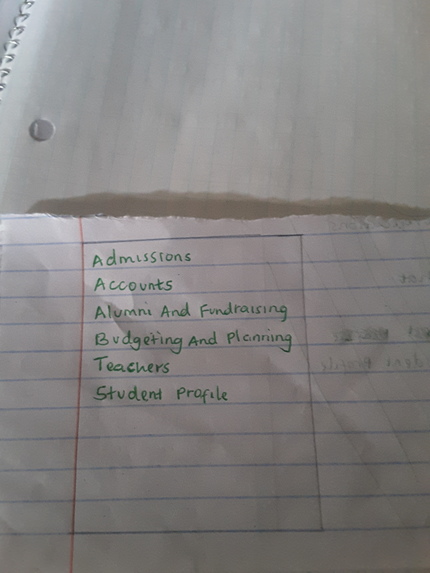 Admissions
Accounts
Alumni And Fundraising
Budgeting And Planning
Teachers
Student Profile